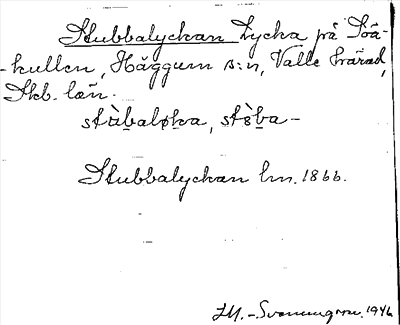 Stubbalyckan Lycka på Två-
-kullen, Häggum s:n, Valle härad,
Skb. län.
stùḇaløḵa, stɵ̀ḇa-
Stubbalyckan lm. 1866.
1946